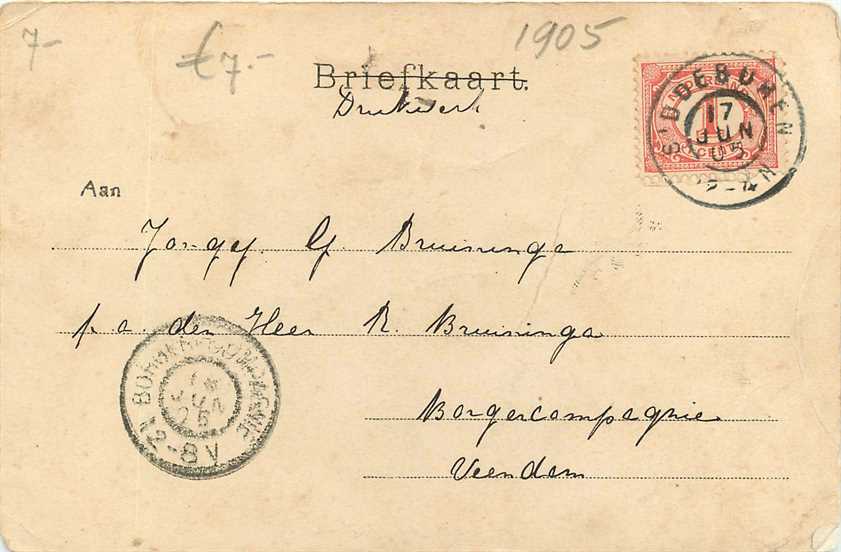 7-
€7.-
1905
Briefkaart.
Drukwerk
CENT
SIDDEBUREN
17
JUN
05
2-4N
Aan
Jongej. G. Bruininga
p.a. den Heer R. Bruininga
Borgercompagnie
Veendam
BORGERCOMPAGNIE
JUN
05
12-8V